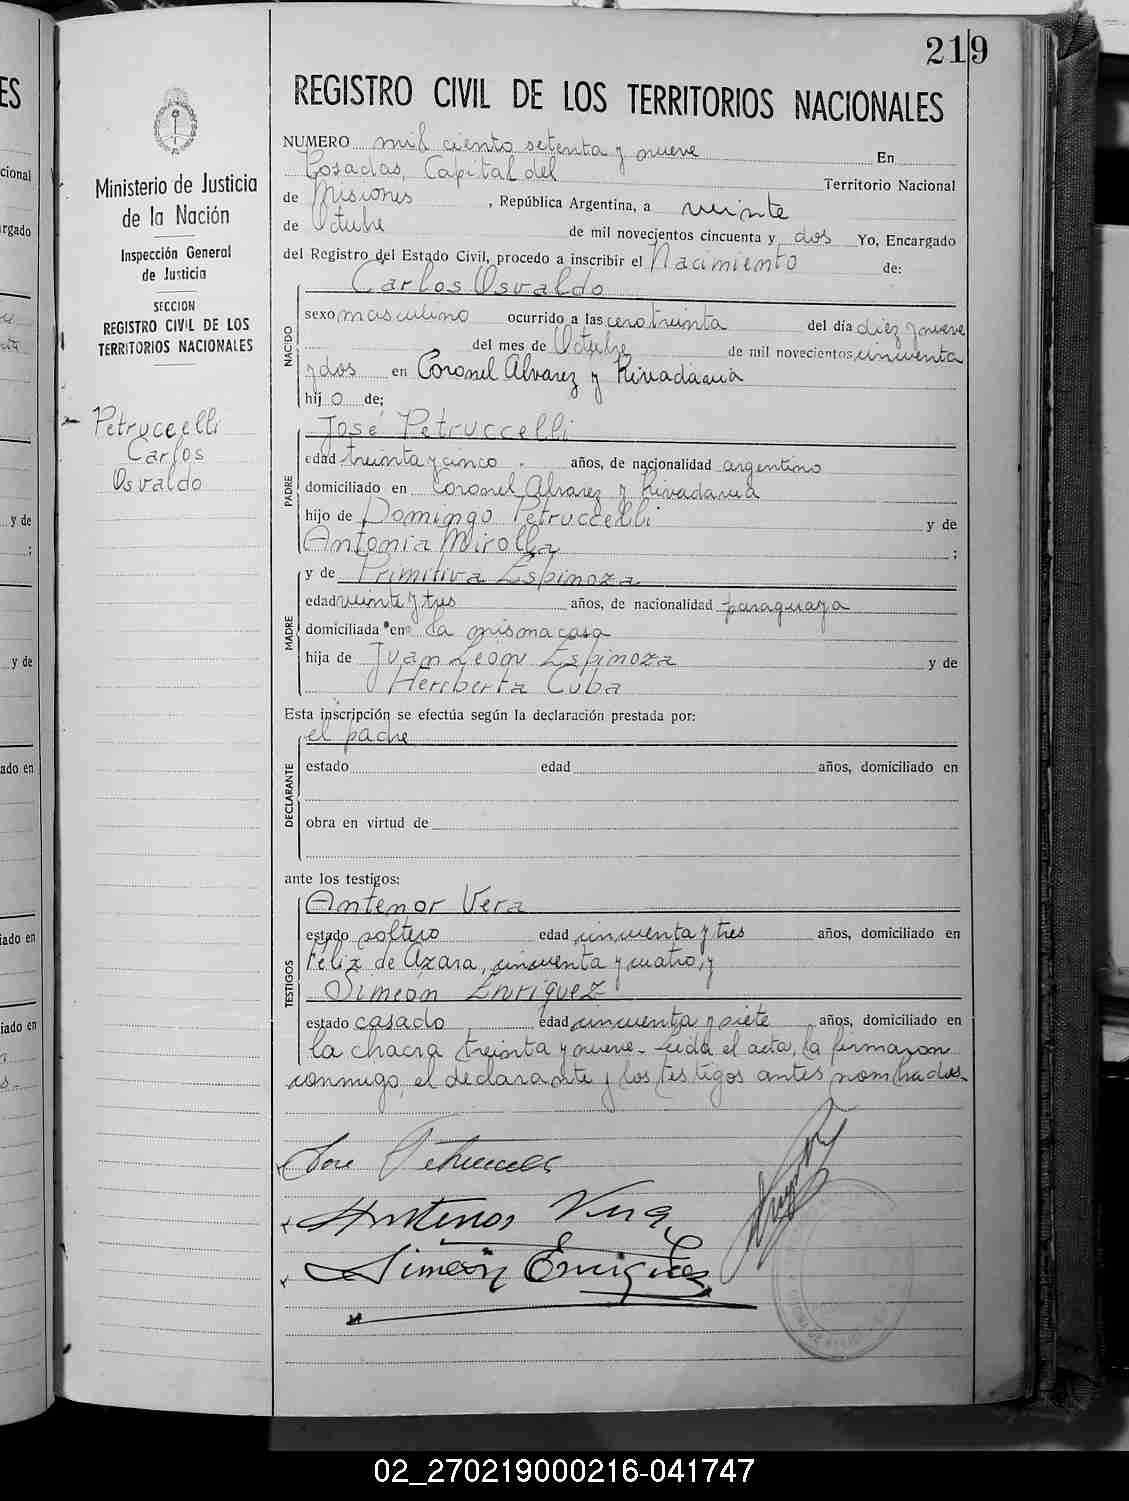 219
REGISTRO CIVIL DE LOS TERRITORIOS NACIONALES
Ministerio de Justicia
de la Nación
Inspección General
de Justicia
SECCION
REGISTRO CIVIL DE LOS
TERRITORIOS NACIONALES
Petruccelli
Carlos
Osvaldo
NUMERO mil ciento setenta y nueve En
Posadas, Capital del Territorio Nacional
de Misiones, República Argentina, a veinte
de Octubre de mil novecientos cincuenta y dos Yo, Encargado
del Registro del Estado Civil, procedo a inscribir el Nacimiento de:
Carlos Osvaldo
NACIDO
sexo masculino ocurrido a las cero treinta del día diez y nueve
del mes de Octubre de mil novecientos cincuenta
y dos en Coronel Alvarez y Rivadavia
hijo de;
José Petruccelli
PADRE
edad treinta y cinco. años, de nacionalidad argentino
domiciliado en Coronel Alvarez y Rivadavia
hijo de Domingo Petruccelli y de
Antonia Mirolla ;
y de Primitiva Espinoza
MADRE
edad veinte y tres años, de nacionalidad paraguaya
domiciliada en la misma casa
hija de Juan León Espinoza y de
Heriberta Cuba
Esta inscripción se efectúa según la declaración prestada por:
el padre
DECLARANTE
estado edad años, domiciliado en
obra en virtud de
ante los testigos:
Antenor Vera
TESTIGOS
estado soltero edad cincuenta y tres años, domiciliado en
Félix de Azara, cincuenta y cuatro, y
Simeón Enriquez
estado casado edad cincuenta y siete años, domiciliado en
la chacra treinta y nueve- Leída el acta, la firmaron
conmigo, el declarante y los testigos antes nombrados.
José Petruccelli
Antenor Vera
Simeón Enriquez
ES
cional
rgado
y de
;
y de
ado en
iado en
iado en
02_270219000216-041747